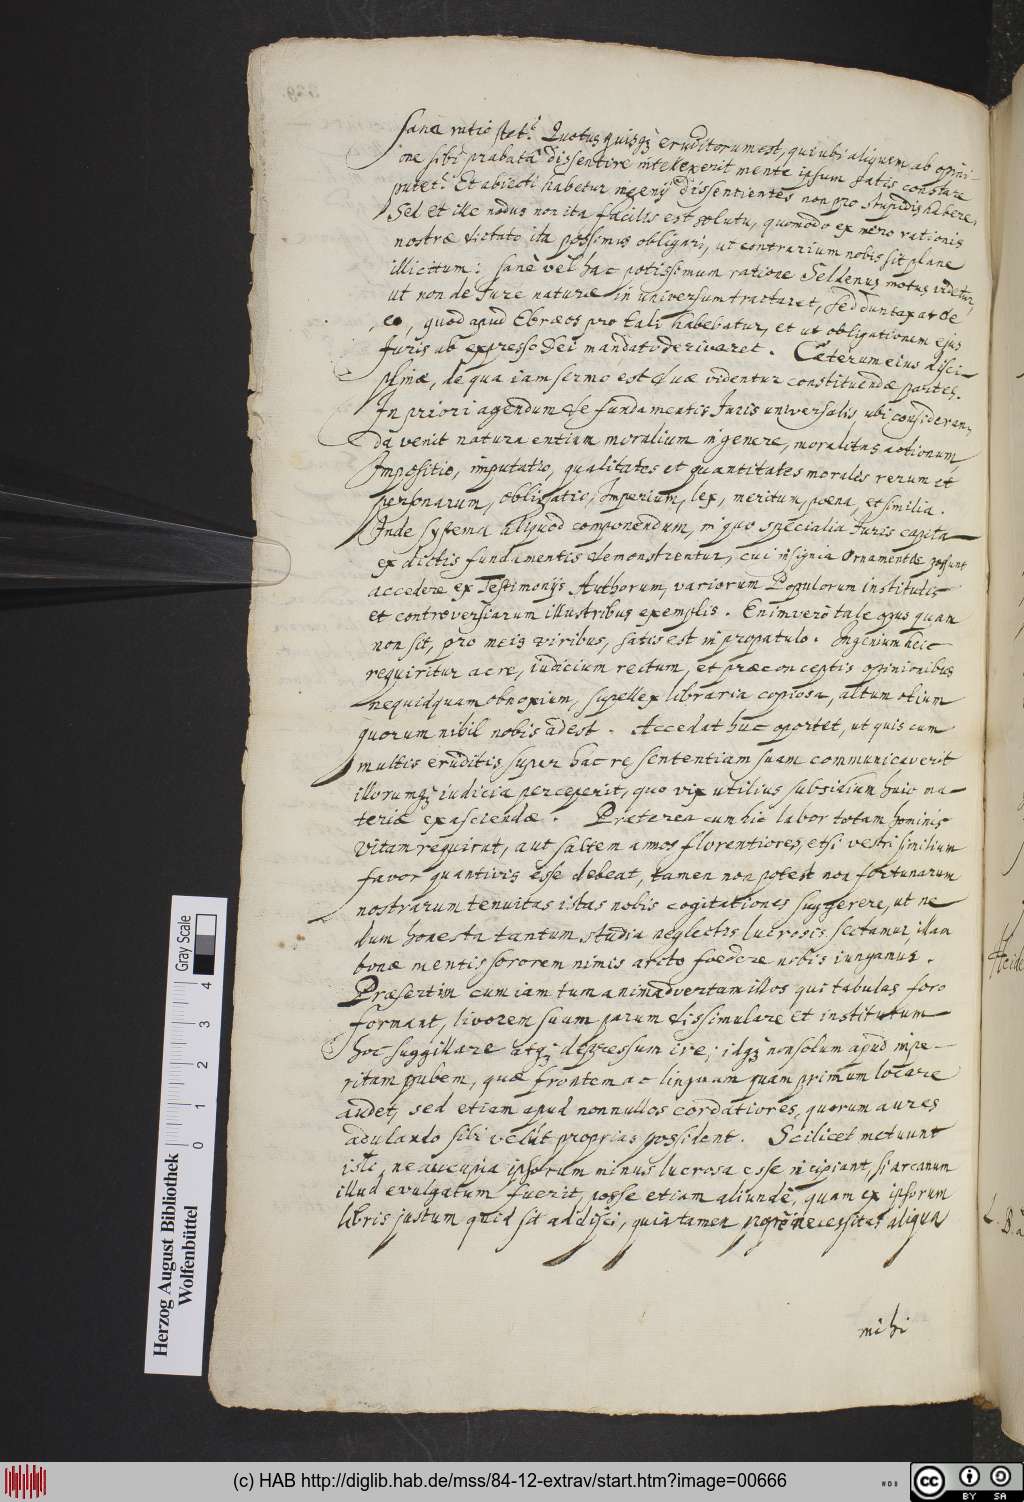 sana ratio stet. Quotusquisq; eruditorum est, qui ubi aliquem ab opini-
one sibi probata dissentire intellexerit mente ipsum satis constare
putet. Et abiecti habetur ingenij dissentientes non pro stupidis habere.
Sed et ille nodus non ita facilis est solutu, quomodo ex mero rationis
nostræ dictato ita possimus obligari, ut contrarium nobis sit plane
illicitum: sanè vel hac potissimum ratione Seldenus motus videtur,
ut non de Jure naturæ in universum tractaret, sed duntaxat de
eo, quod apud Ebræos pro tali habebatur, et ut obligationem ejus
Juris ab expresso Dei mandato derivaret. Cæterum eius disci-
plinæ, de qua iam sermo est duæ videntur constituendæ partes.
In priori agendum de fundamentis Juris universalis, ubi consideran-
da venit natura entium moralium in genere, moralitas actionum,
Impositio, imputatio, qualitates et quantitates morales rerum et
personarum, obligatio, Imperium, lex, meritum, pœna, et similia.
Inde systema aliquod componendum, in quo specialia Juris capita
ex dictis fundamentis demonstrentur, cui insignia ornamentis possunt
accedere ex Testimonijs Authorum, variorum Populorum institutis
et controversiarum illustribus exemplis. Enimverò tale opus quam
non sit, pro meis viribus, satis est in propatulo. Ingenium heic
requiritur acre, iudicium rectum, et præconceptis opinionibus
nequidquam obnoxium, supellex libraria copiosa, altum otium
quorum nihil nobis adest. Accedat huc oportet, ut quis cum
multis eruditis super hac re sententiam suam communicaverit
illorumq; iudicia perceperit, quo vix utilius subsidium huic ma-
teriæ exasciendæ. Præterea cum hic labor totam hominis
vitam requirat, aut saltem annos florentiores, etsi vestri similium
favor quantivis esse debeat, tamen non potest non fortunarum
nostrarum tenuitas istas nobis cogitationes suggerere, ut ne
dum honesta tantum studia neglectis lucrosis sectamur, illam
bonæ mentis sororem nimis arcto foedere nobis iungamus.
Præsertim cum iam tum animadvertam illos qui tabulas foro
formant, livorem suum parum dissimulare et institutum
hoc suggillare atq; depressum ire; idq; non solum apud impe-
ritam pubem, quæ frontem ac linguam quam primum locare
audet, sed etiam apud nonnullos cordatiores, quorum aures
adulando sibi velut proprias possident. Scilicet metuunt
isti, ne aucupia ipsorum minus lucrosa esse incipiant, si arcanum
illud evulgatum fuerit, posse etiam aliundè, quam ex ipsorum
libris justum quid sit addisci, quia tamen porrò necessitas aliqua
mihi
Herzog August Bibliothek
Wolfenbüttel
Gray Scale
0 1 2 3 4
(c) HAB http://diglib.hab.de/mss/84-12-extrav/start.htm?image=00666
cc BY SA